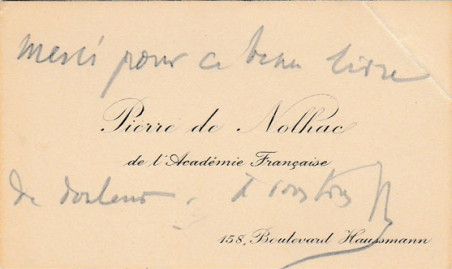 merci pour ce beau livre
Pierre de Nolhac
de l'Académie Française
de douleur. A vous
158, Boulevard Haussmann